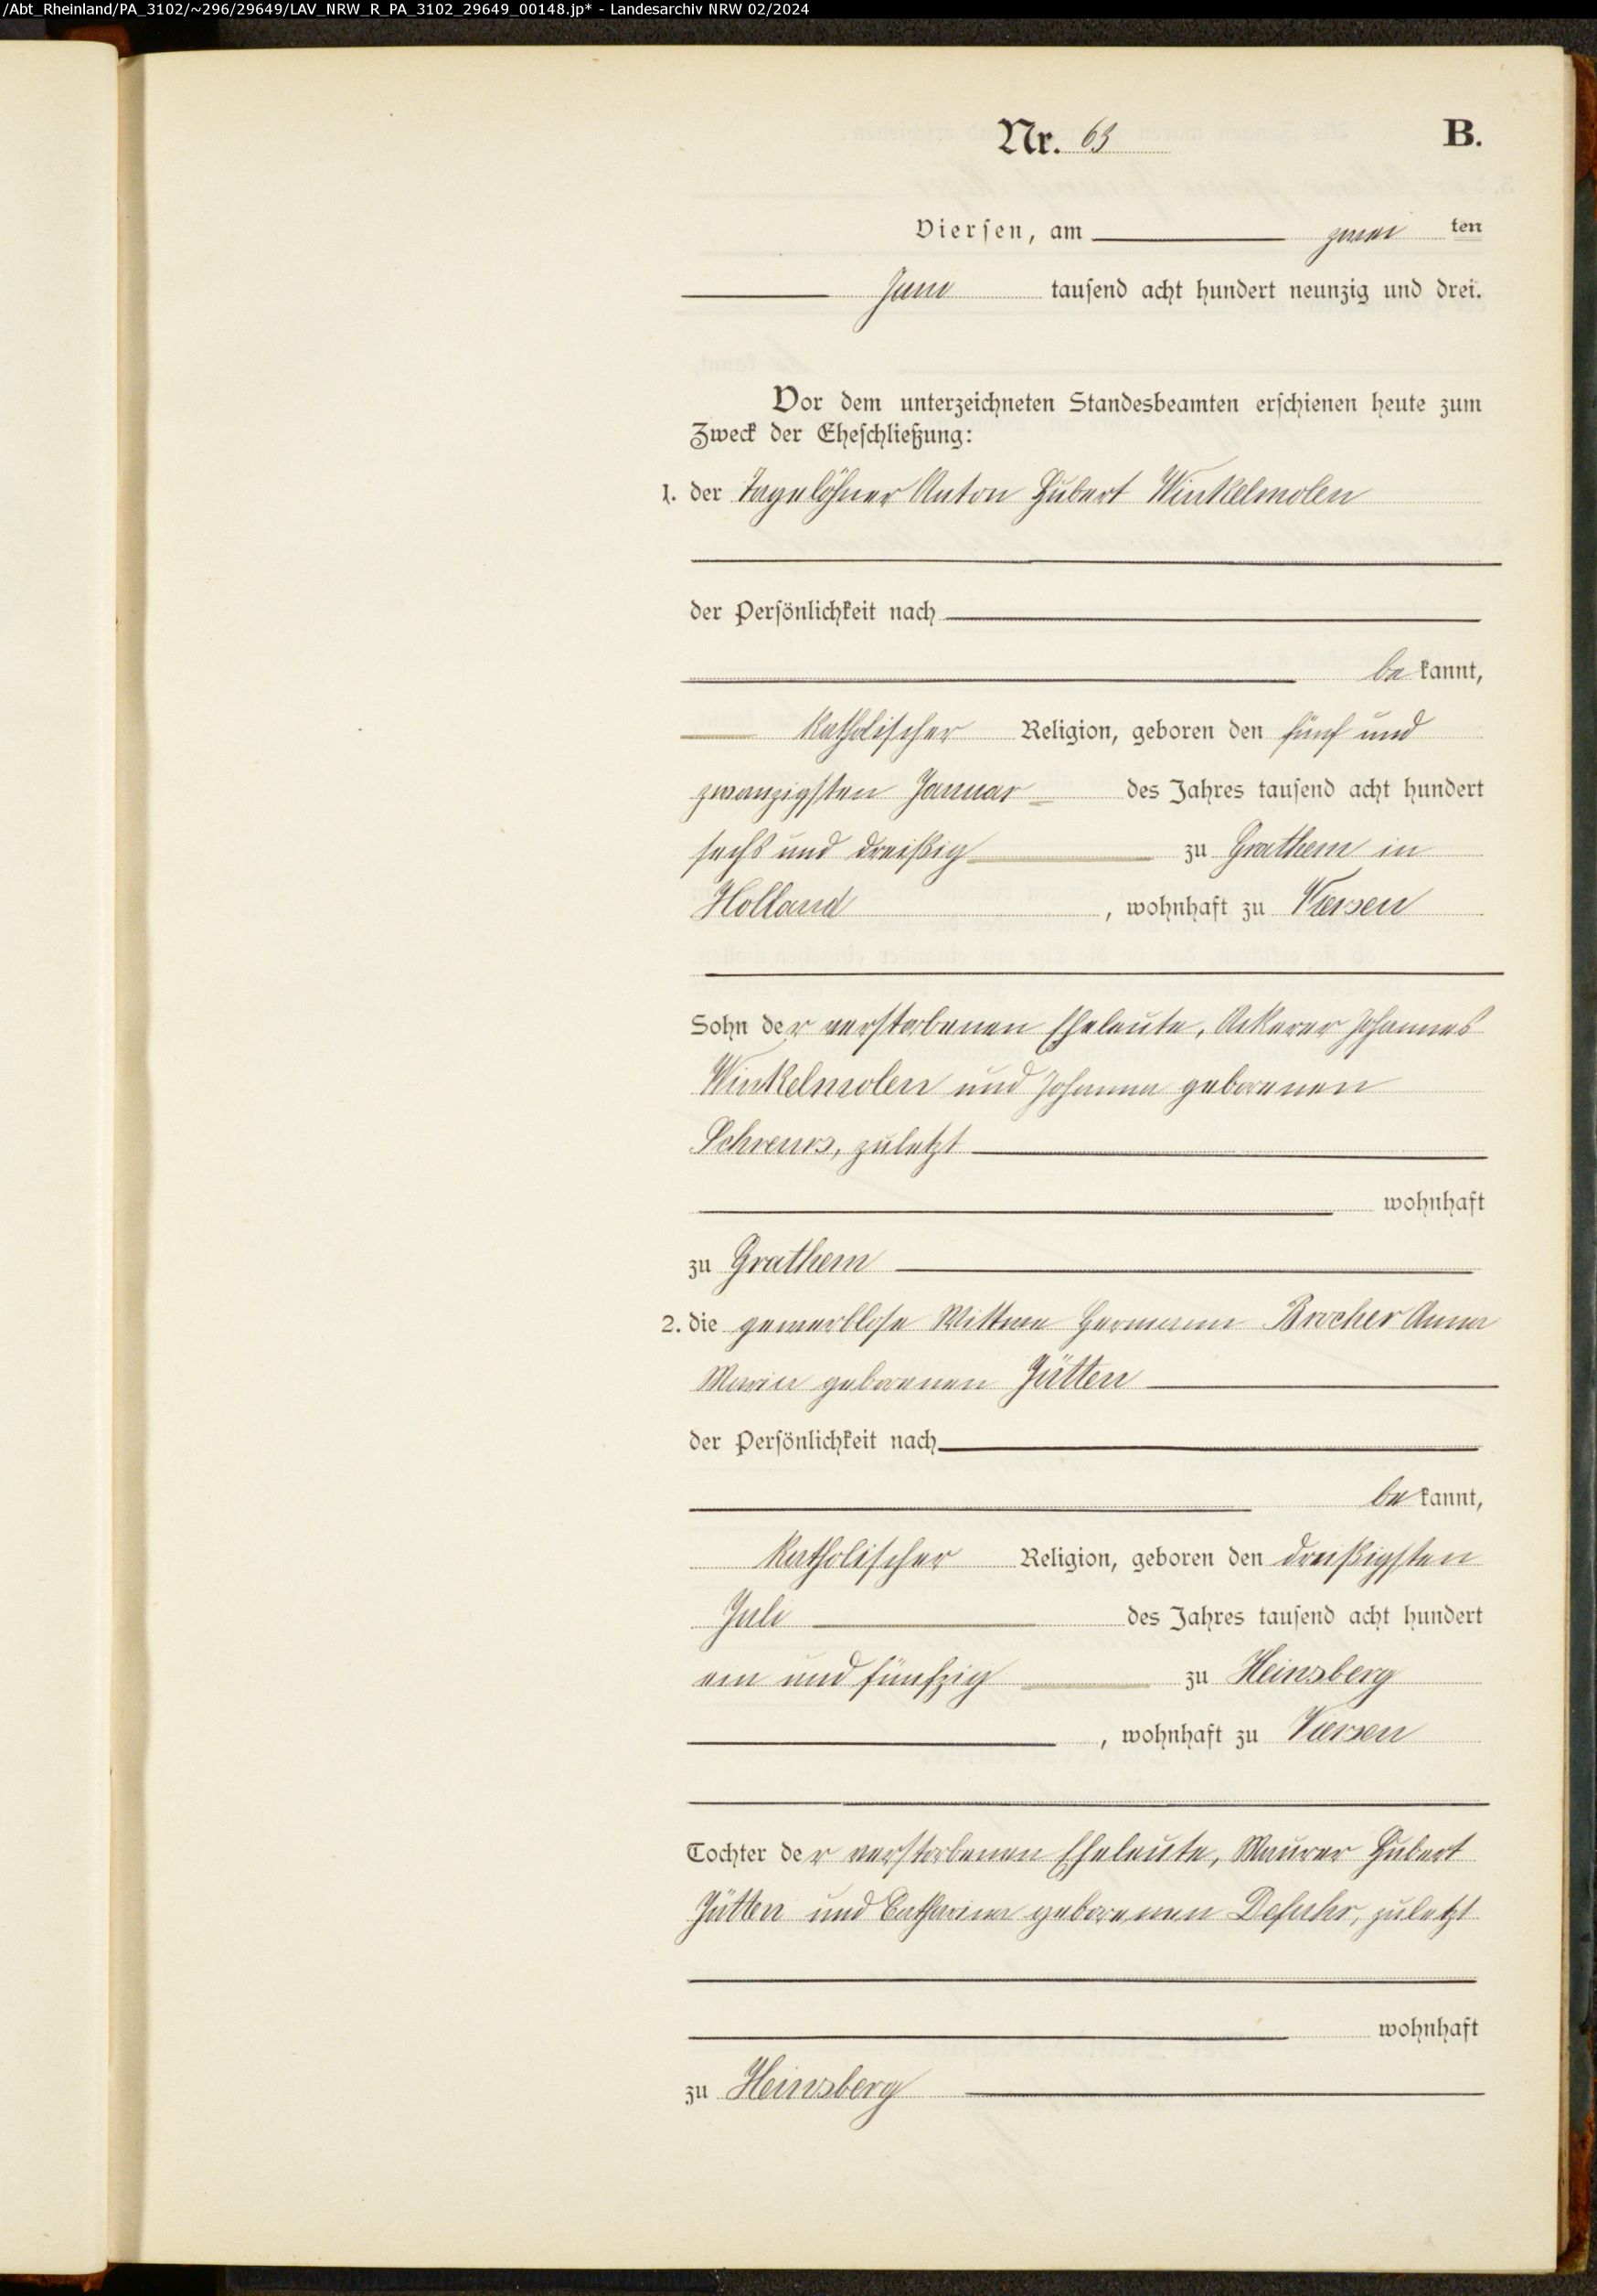 /Abt_Rheinland/PA_3102/~296/29649/LAV_NRW_R_PA_3102_29649_00148.jp* - Landesarchiv NRW 02/2024
Nr. 63 B.
Viersen, am zwei ten
Juni tausend acht hundert neunzig und drei.
Vor dem unterzeichneten Standesbeamten erschienen heute zum
Zweck der Eheschließung:
1. der Tagelöhner Anton Hubert Winkelmolen
der Persönlichkeit nach
be kannt,
katholischer Religion, geboren den fünf und
zwanzigsten Januar des Jahres tausend acht hundert
sechs und dreißig zu Grathem in
Holland, wohnhaft zu Viersen
Sohn der verstorbenen Eheleute, Ackerer Johannes
Winkelmolen und Johanna geborenen
Schreurs, zuletzt
wohnhaft
zu Grathem
2. die gewerblose Wittwe Hermann Brocher Anna
Maria geborenen Jütten
der Persönlichkeit nach
be kannt,
katholischer Religion, geboren den dreißigsten
Juli des Jahres tausend acht hundert
ein und fünfzig zu Heinsberg
, wohnhaft zu Viersen
Tochter der verstorbenen Eheleute, Maurer Hubert
Jütten und Catharina geborenen zuletzt
wohnhaft
zu Heinsberg